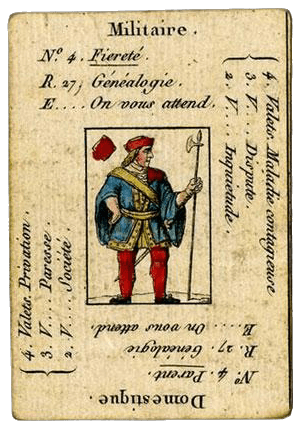 Militaire.
N.º 4. Fiereté.
R. 27; Généalogie.
E.... On vous attend.
4. Valets. Maladie contagieuse
3. V... Dispute.
2. V.... Inquiétude.
4. Valets. Privation.
3. V.... Paresse.
2. V... Société.
Domestique.
N.º 4. Parent.
R. 27. Généalogie
E.... On vous attend.